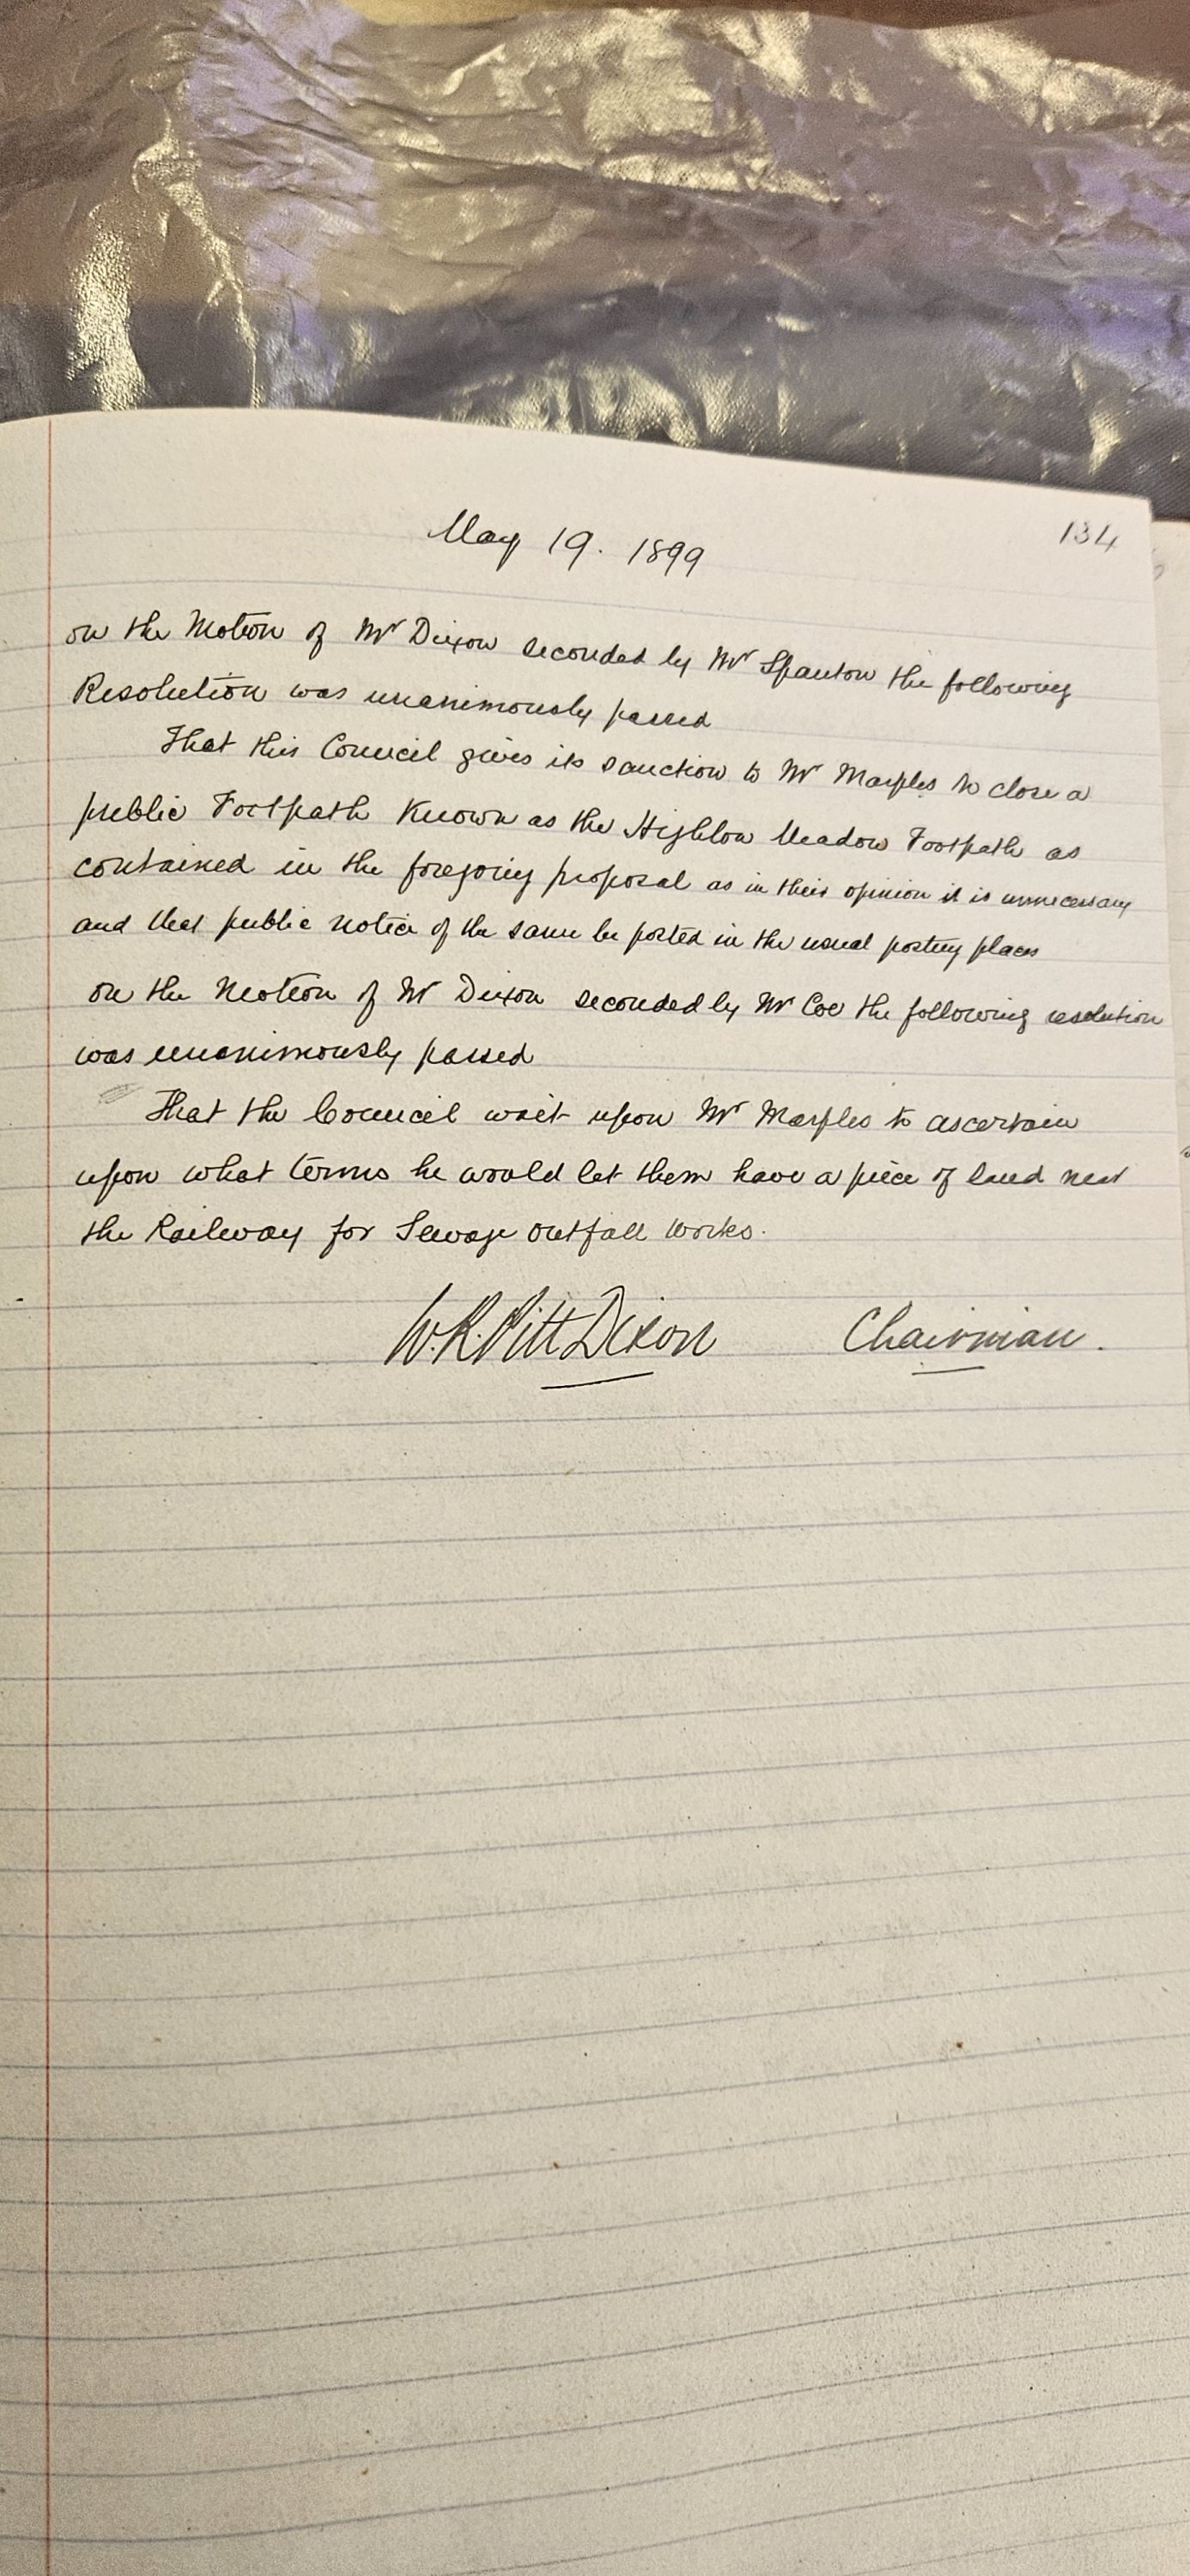 May 19. 1899
134
on the Motion of Mr Dixon seconded by Mr Spanton the following
Resolution was unanimously passed
That this Council gives its sanction to Mr Marples to close a
public Footpath Known as the Highlow Meadow Footpath as
contained in the foregoing proposal as in their opinion it is unnecessary
and that public notice of the same be posted in the usual posting places
on the Motion of Mr Dixon seconded by Mr Coe the following resolution
was unanimously passed
That the Council wait upon Mr Marples to ascertain
upon what terms he would let them have a piece of land near
the Railway for Sewage outfall works.
W.R. Pitt Dixon Chairman.